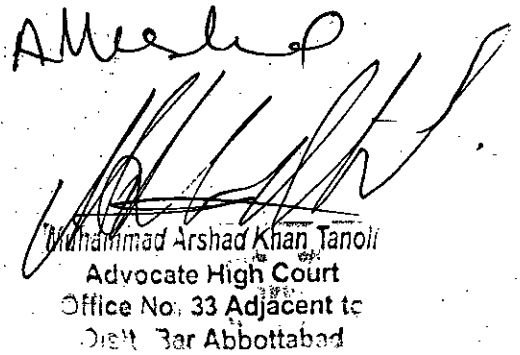 Attested
Muhammad Arshad Khan Tanoli
Advocate High Court
Office No. 33 Adjacent to
Distt. Bar Abbottabad